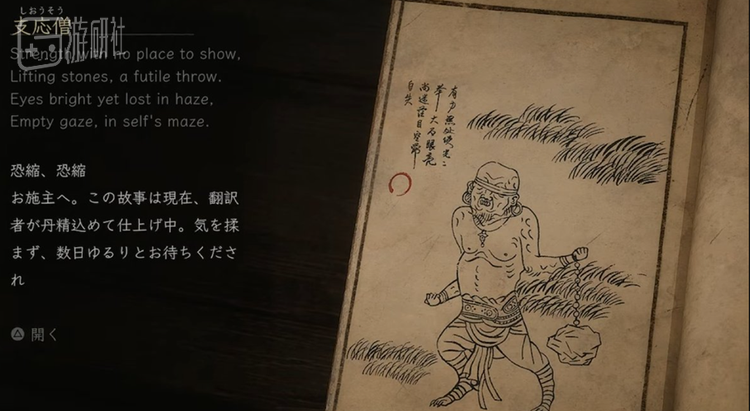 しおうそう
支応僧
游研社
Strength with no place to show,
Lifting stones, a futile throw.
Eyes bright yet lost in haze,
Empty gaze, in self's maze.
恐縮、恐縮
お施主へ。この故事は現在、翻訳
者が丹精込めて仕上げ中。気を揉
まず、数日ゆるりとお待ちくださ
れ
開く
有力無處使
大石眼亮
尚迷茫目空
自失